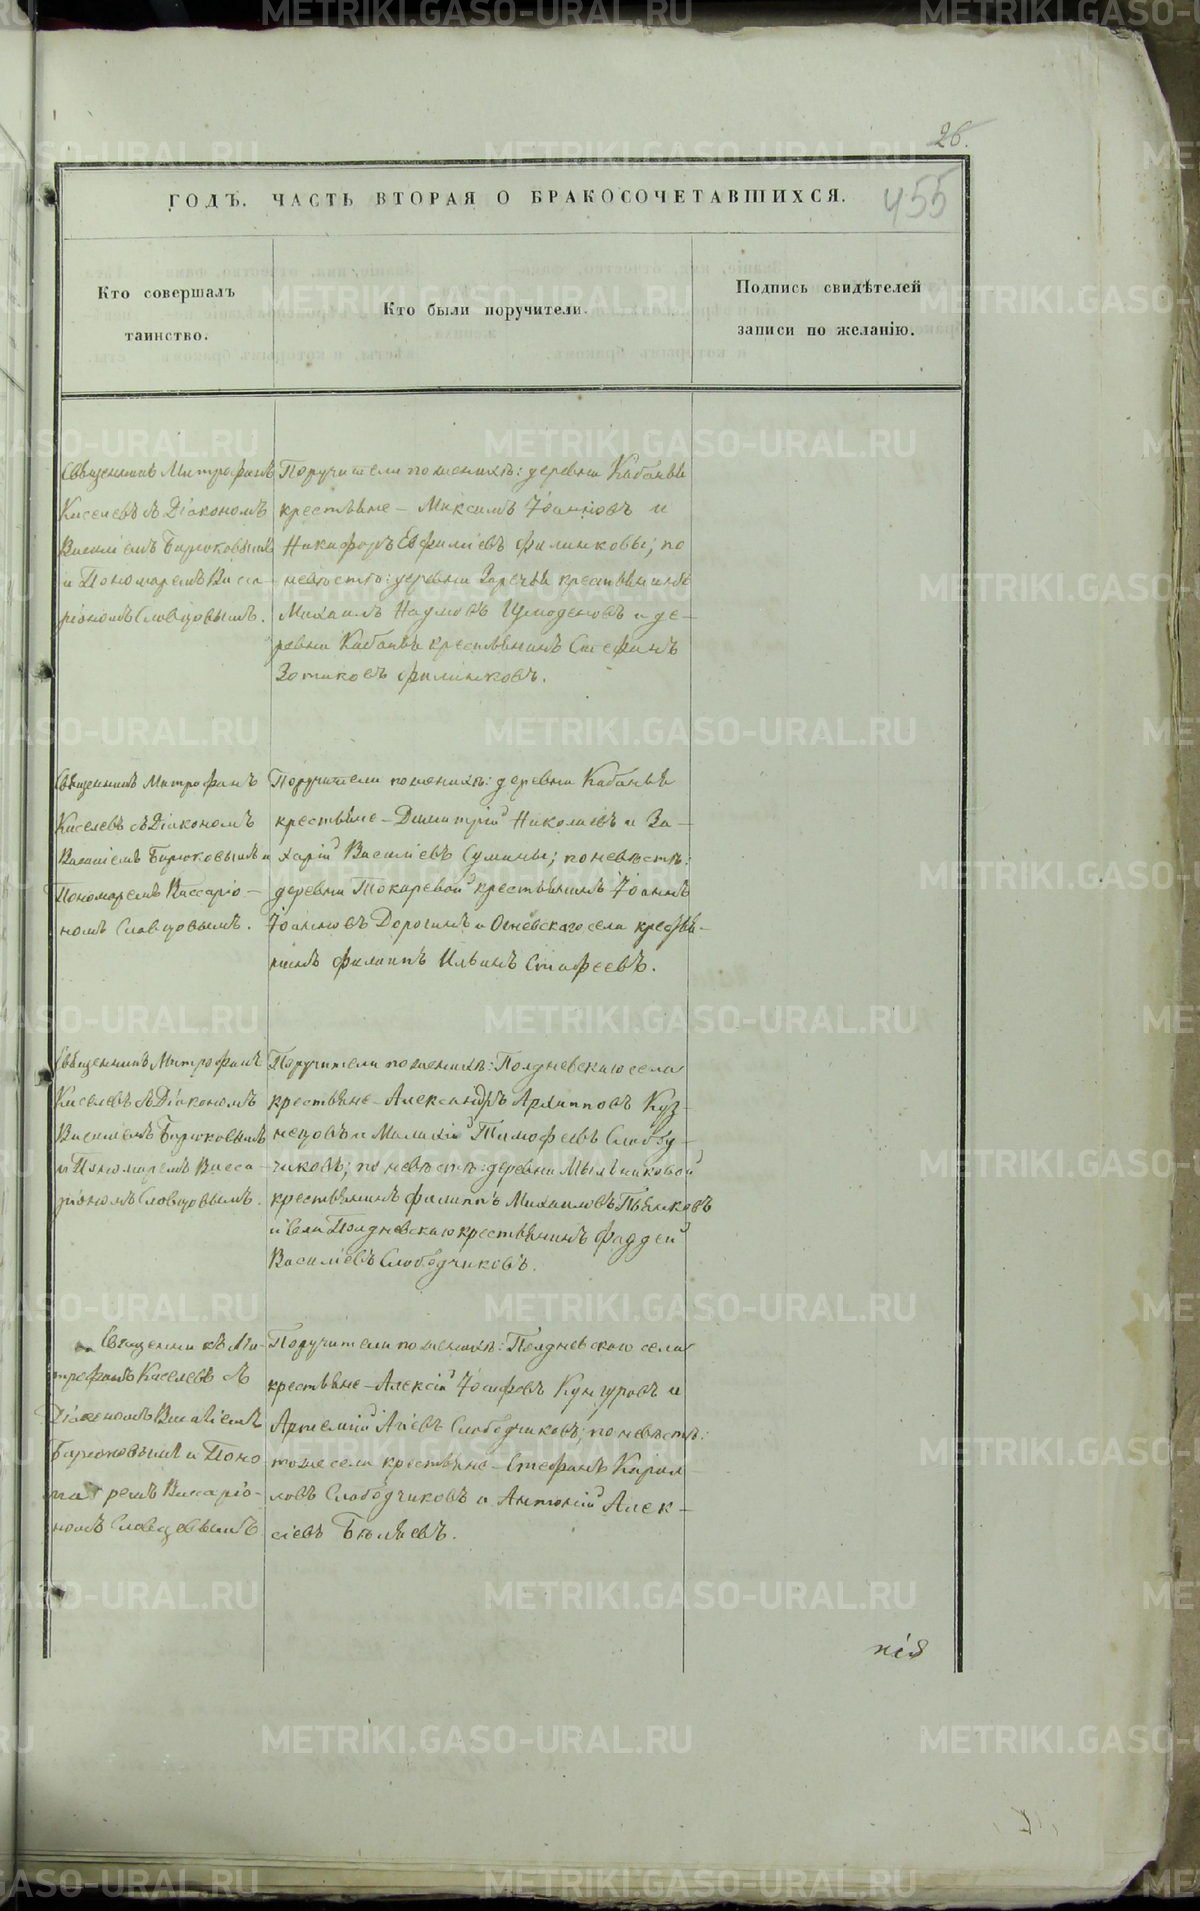 26.
455
ГОДЪ. ЧАСТЬ ВТОРАЯ О БРАКОСОЧЕТАВШИХСЯ.
Кто совершалъ
таинство.
Кто были поручители.
Подпись свидѣтелей
записи по желанію.
Священникъ Митрофанъ
Киселевъ съ Діакономъ
Василіемъ Бирюковымъ
и Пономаремъ Висса-
ріономъ Словцовымъ.
Поручители по женихѣ: деревни Кабаньи
крестьяне – Максимъ Іоанновъ и
Никифоръ Евфиміевъ Филинковы; по
невѣстѣ: деревни Заречьи крестьянинъ
Михаилъ Наумовъ и де-
ревни Кабаньи крестьянинъ Стефанъ
Зотиковъ Филинковъ.
Священникъ Митрофанъ
Киселевъ съ Діакономъ
Василіемъ Бирюковымъ и
Пономаремъ Виссаріо-
номъ Словцовымъ.
Поручители по женихѣ: деревни Кабаньи
крестьяне – Димитрій Николаевъ и За-
харій Василіевъ Сумины; по невѣстѣ:
деревни Токаревой крестьянинъ Іоаннъ
Іоанновъ Дорогинъ и Огневскаго села крестья-
нинъ Филиппъ Ильинъ Стафеевъ.
Священникъ Митрофанъ
Киселевъ съ Діакономъ
Василіемъ Бирюковымъ
и Пономаремъ Висса-
ріономъ Словцовымъ.
Поручители по женихѣ: Полдневскаго села
крестьяне – Александръ Архипповъ Куз-
нецовъ и Малахій Тимофеевъ Слобод-
чиковъ; по невѣстѣ: деревни Мыльниковой
крестьянинъ Филиппъ Михаиловъ Пьянковъ
и села Полдневскаго крестьянинъ Фаддей
Василіевъ Слободчиковъ.
Священникъ Ми-
трофанъ Киселевъ съ
Діакономъ Василіемъ
Бирюковымъ и Поно
маремъ Виссаріо-
номъ Словцовымъ
Поручители по женихѣ: Полдневскаго села
крестьяне – Алексій Іосифовъ Кунгуровъ и
Артемій Агіевъ Слободчиковъ; по невѣстѣ:
тогоже села крестьяне – Стефанъ Кирил-
ловъ Слободчиковъ и Антоній Алек-
сіевъ Бѣляевъ.
нія
METRIKI.GASO-URAL.RU